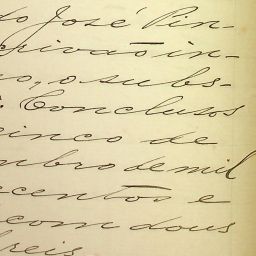 do José Pin-
crivão in-
no, o subs-
Conclusos
cinco de
mbro de mil
ecentos e
com dous
reis